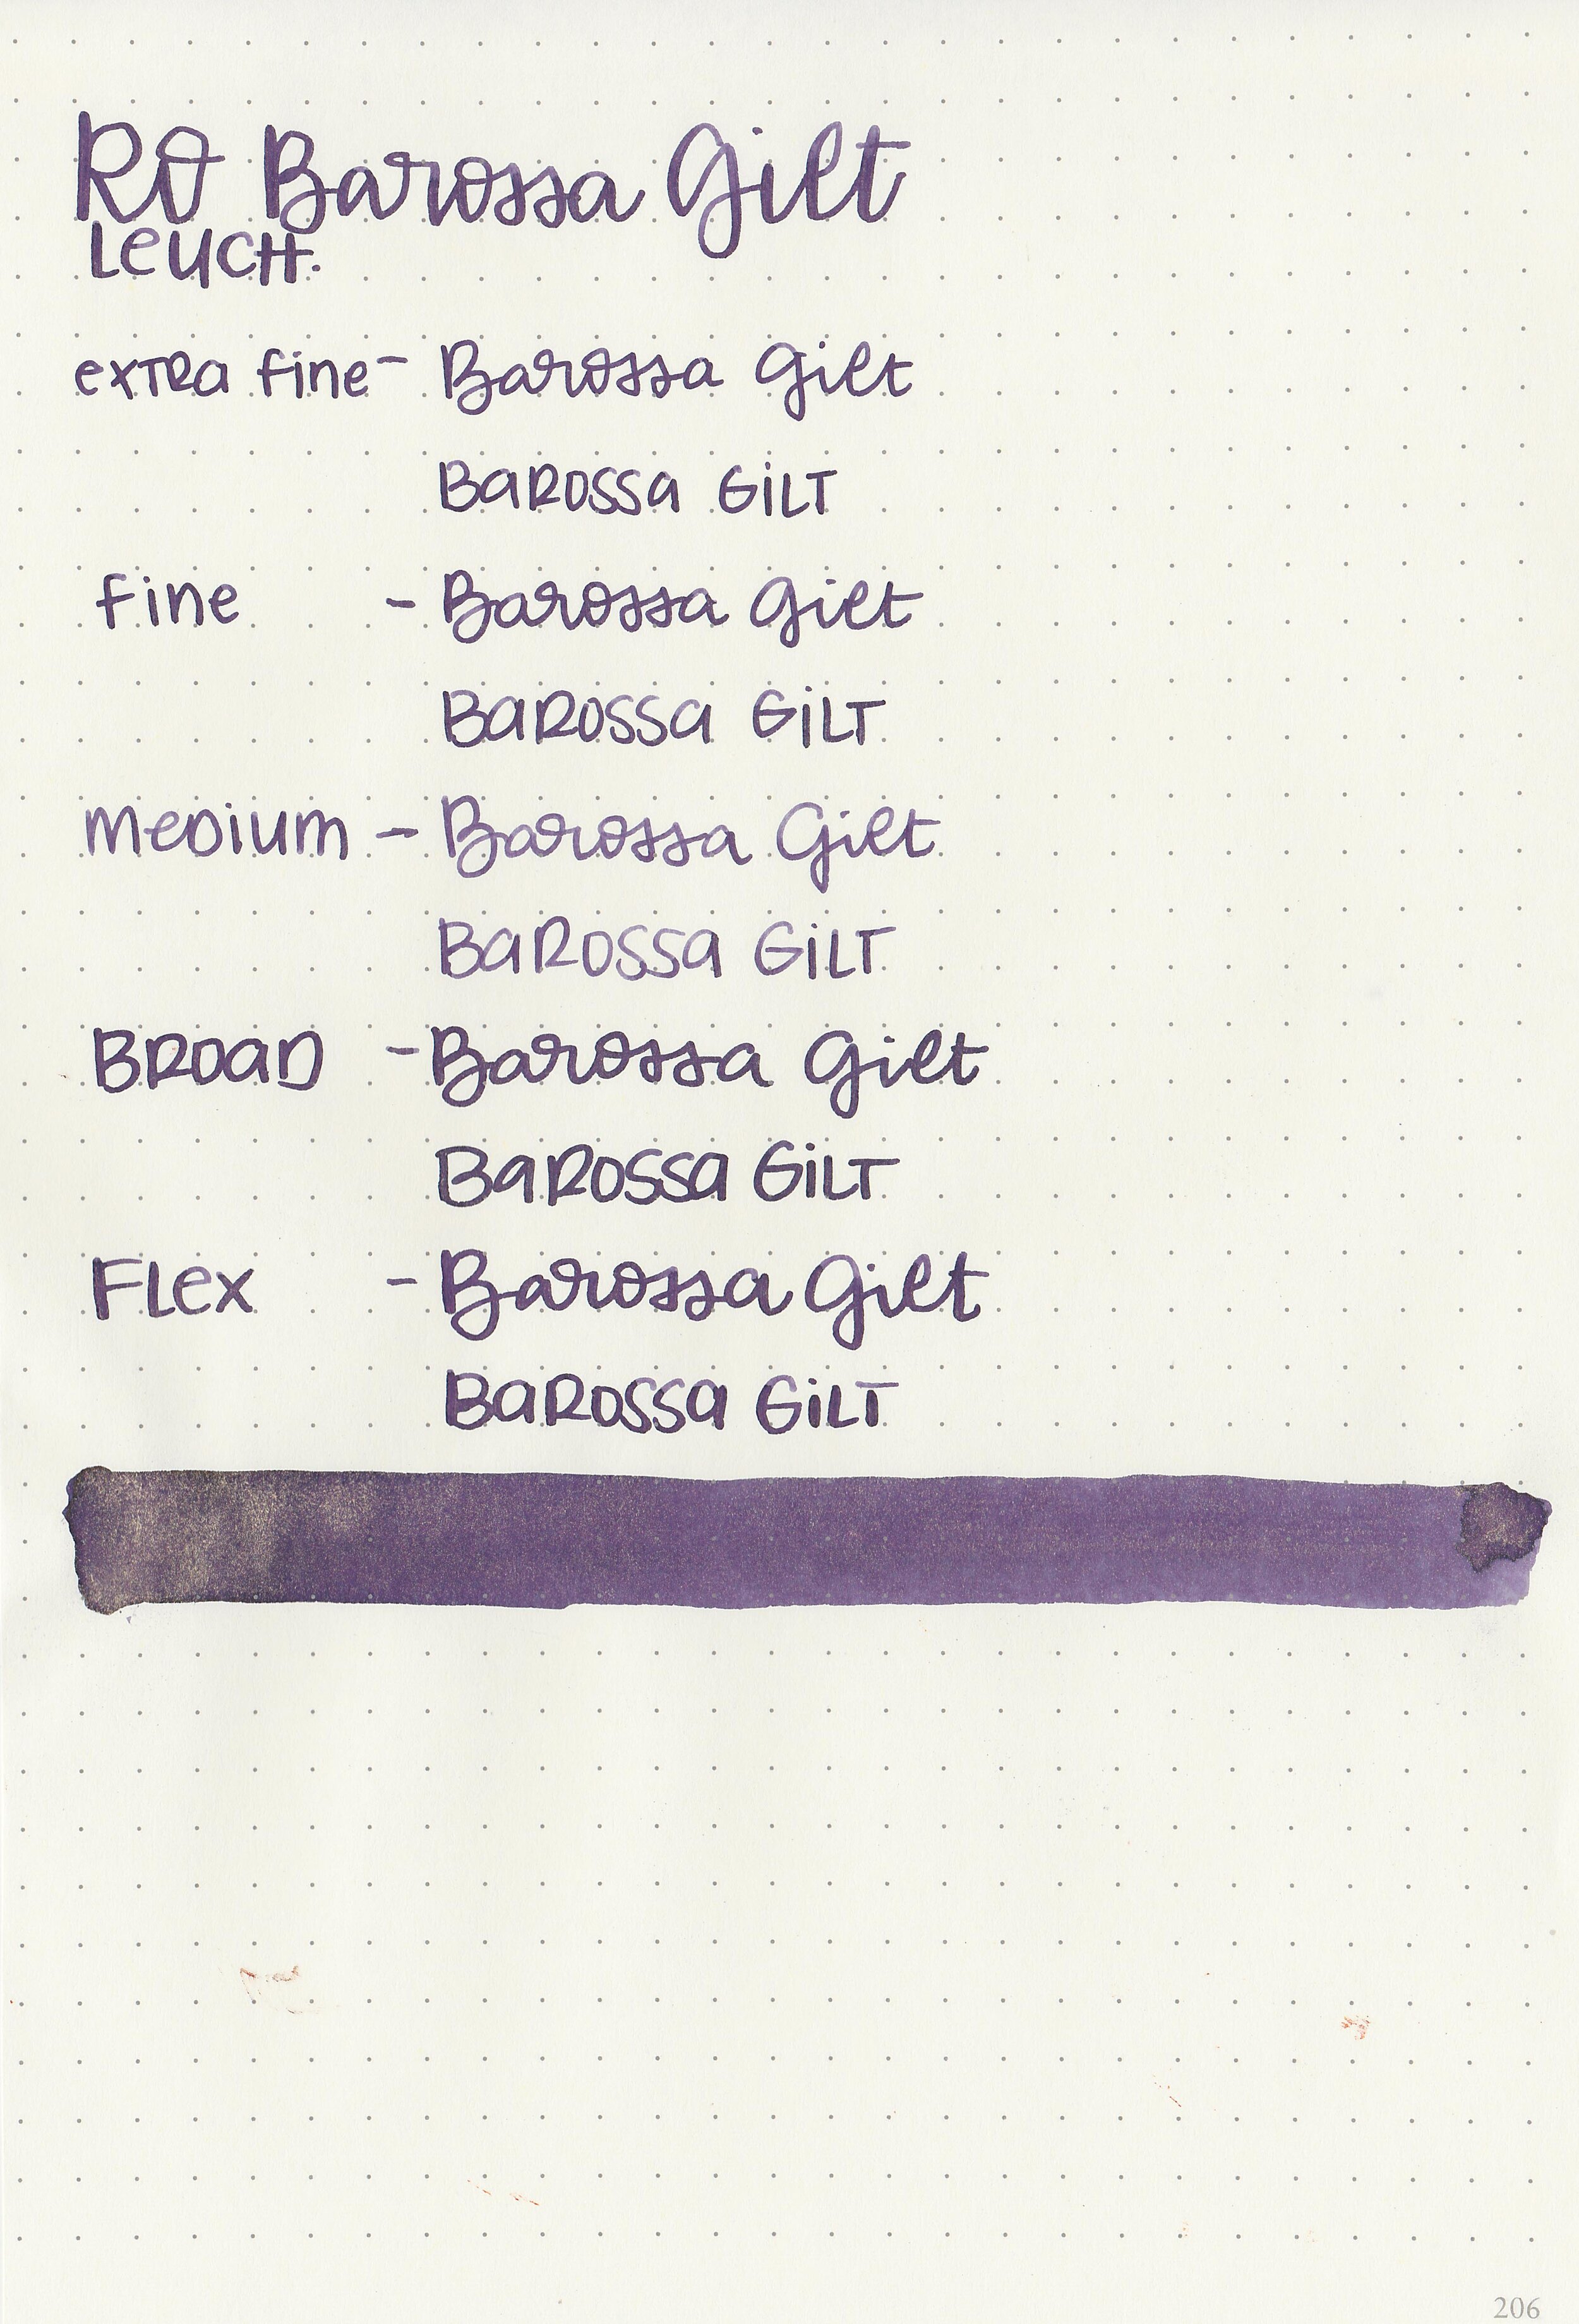 RO Barossa Gilt
Leucht.
extra fine - Barossa Gilt
BaROSSa GiLT
fine - Barossa Gilt
BaROSSa GiLT
Medium - Barossa Gilt
BaROSSa GiLT
BROaD - Barossa Gilt
BaROSSa GiLT
FLex - Barossa Gilt
BaROSSa GiLT
206